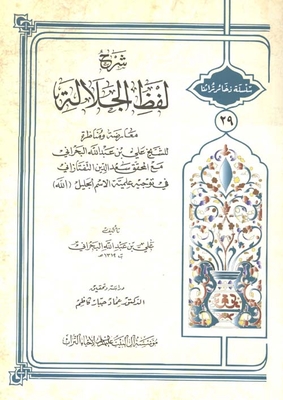 سلسلة ذخائر تراثنا
٢٩
شرح
لفظ الجلالة
معارضة ومناظرة
للشيخ علي بن عبدالله البحراني
مع المحقق سعد الدين التفتازاني
في توجيه علمية الاسم الجليل (الله)
تأليف
علي بن عبدالله البحراني
ت ١٣١٩ هـ
دراسة وتحقيق
الدكتور عماد جبار كاظم
مؤسسة آل البيت عليهم السلام لإحياء التراث